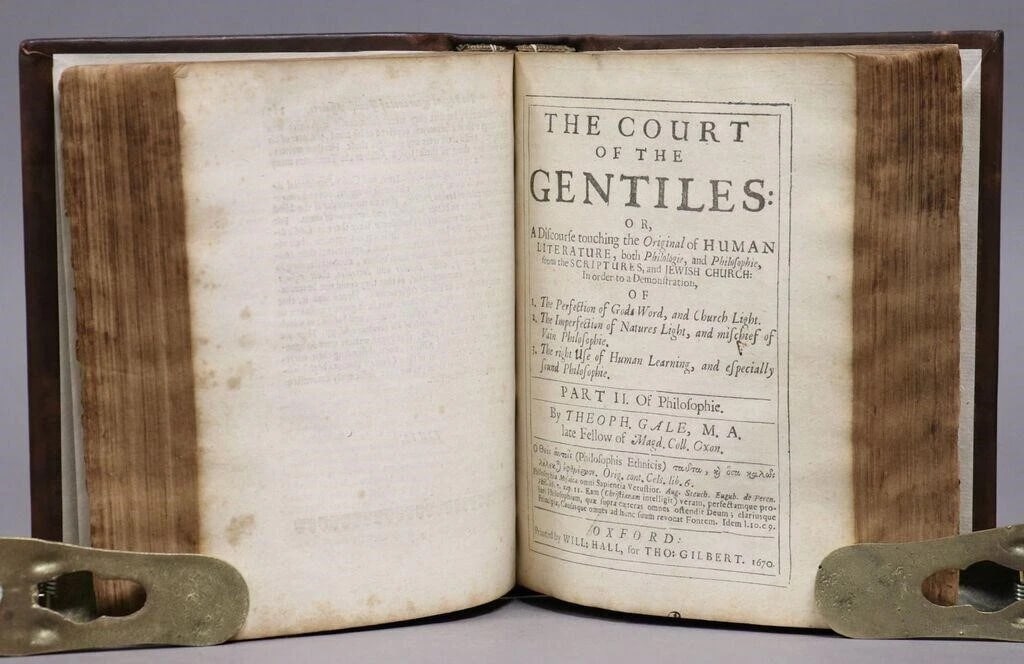 THE COURT
OF THE
GENTILES:
OR,
A Discourse touching the Original of HUMAN
LITERATURE, both Philologie, and Philosophie,
from the SCRIPTURES, and JEWISH CHURCH:
In order to a Demonstration,
OF
1. The Perfection of Gods Word, and Church Light.
2. The Imperfection of Natures Light, and mischief of
Vain Philosophie.
3. The right Use of Human Learning, and especially
sound Philosophie.
PART II. Of Philosophie.
By THEOPH. GALE, M. A.
late Fellow of Magd. Coll. Oxon.
(Philosophis Ethnicis) ταῦτα, καλῶς
Orig. cont. Cels. lib. 6.
Philosophia Mosaica omni Sapientia Vetustior. Aug. Steuch. Eugub. de Peren.
cap. 11. Eam (Christianam intelligit) veram, perfectamque pro-
Philosophiam, quæ supra cæteras omnes ostendit Deum; clariusque
Principia, Causasque omnes ad hunc suum revocat Fontem. Idem l. 10. c 9.
OXFORD:
Printed by WILL: HALL, for THO: GILBERT. 1670.